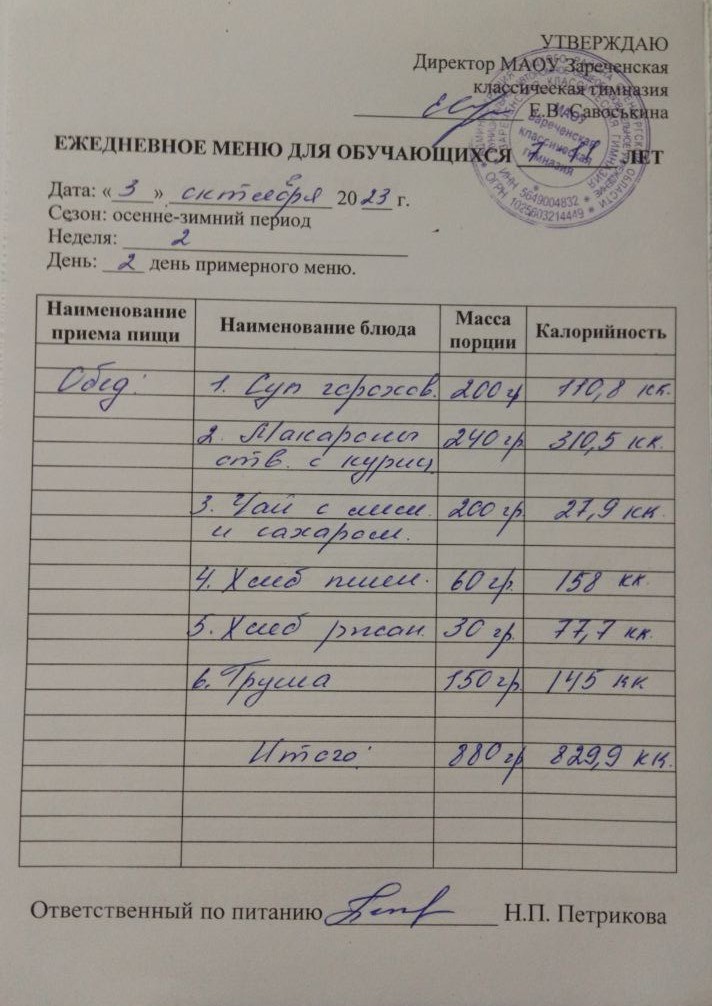 УТВЕРЖДАЮ
Директор МАОУ Зареченская
классическая гимназия
Е.В. Савоськина
ЕЖЕДНЕВНОЕ МЕНЮ ДЛЯ ОБУЧАЮЩИХСЯ 7-11 ЛЕТ
Дата: «3» октября 2023 г.
Сезон: осенне-зимний период
Неделя: 2
День: 2 день примерного меню.
Наименование приема пищи Наименование блюда Масса порции Калорийность
Обед: 1. Суп горохов. 200 гр 110,8 кк.
2. Макароны 240 гр 310,5 кк.
отв. с куриц.
3. Чай с лим. 200 гр. 27,9 кк.
и сахаром.
4. Хлеб пшен. 60 гр. 158 кк.
5. Хлеб ржан. 30 гр. 77,7 кк.
6. Груша 150 гр. 145 кк
Итого: 880 гр 829,9 кк.
Ответственный по питанию Н.П. Петрикова
МАОУ
Зареченская
классическая
гимназия
ИНН 5649004832
ОГРН 1025603214449